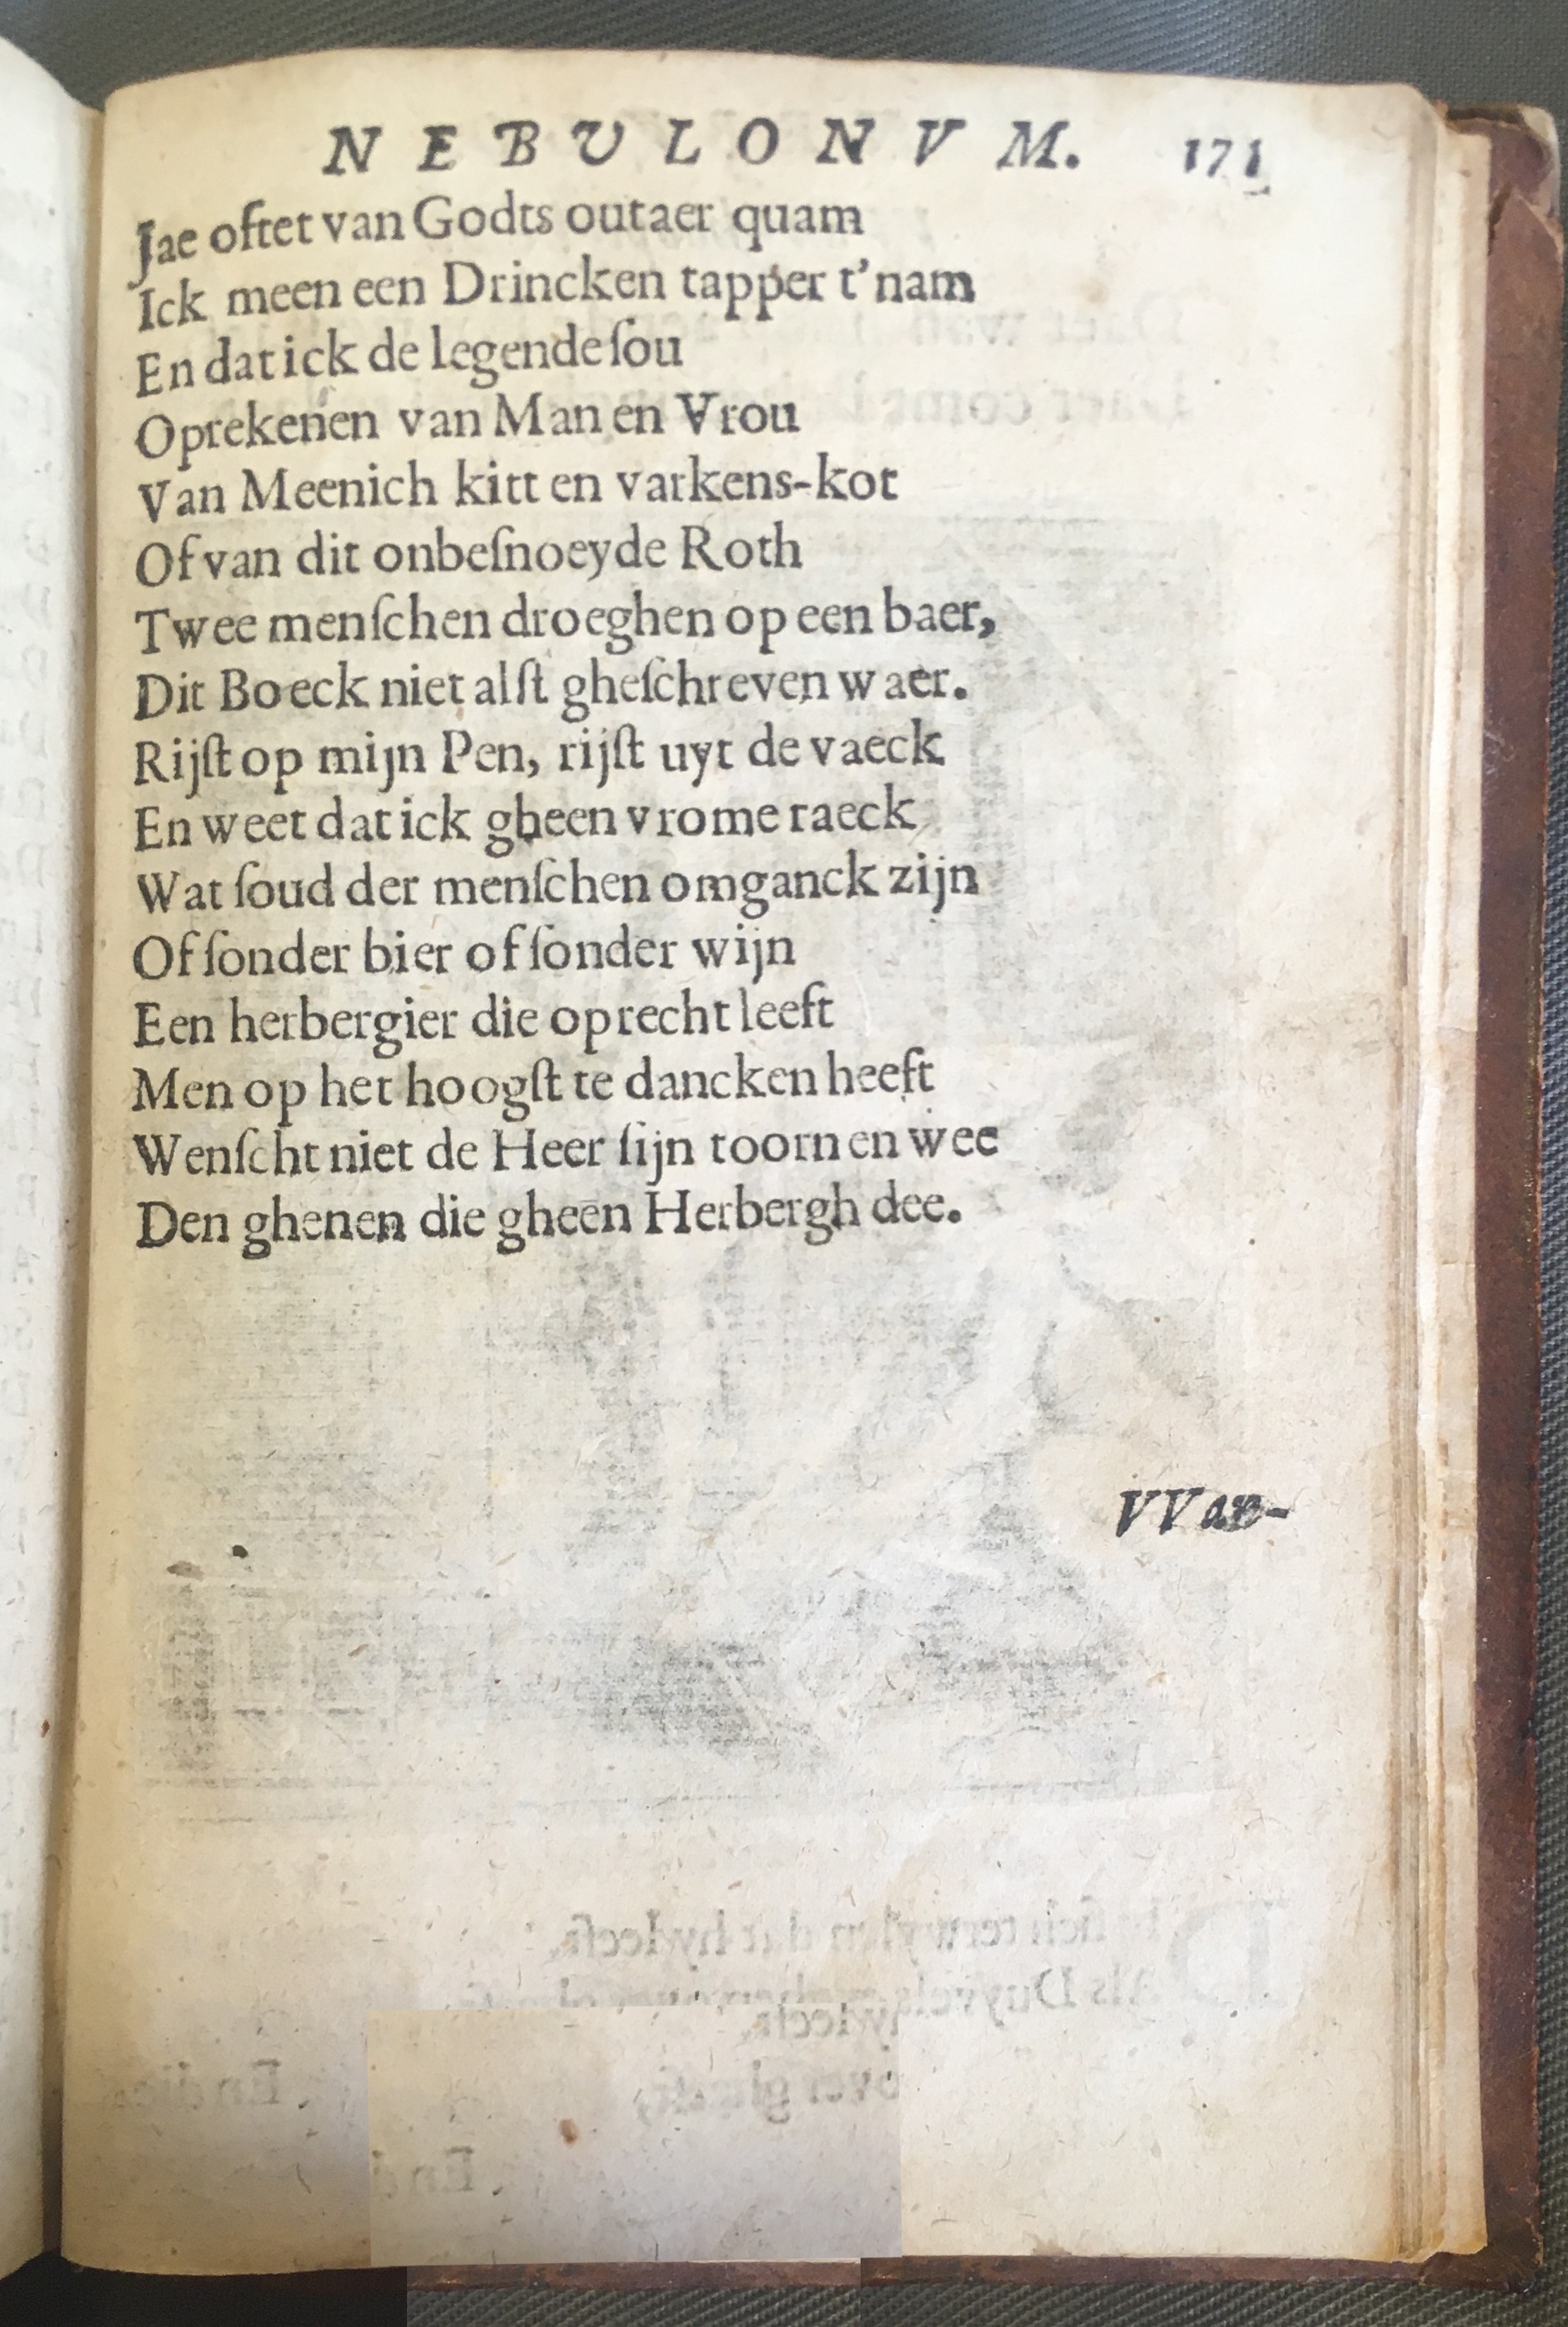 NEBULONVM. 171
Jae oftet van Godts outaer quam
Ick meen een Drincken tapper t'nam
En dat ick de legende ſou
Oprekenen van Man en Vrou
Van Meenich kitt en varkens-kot
Of van dit onbeſnoeyde Roth
Twee menſchen droeghen op een baer,
Dit Boeck niet alſt gheſchreven waer.
Rijſt op mijn Pen, rijſt uyt de vaeck
En weet dat ick gheen vrome raeck
Wat ſoud der menſchen omganck zijn
Of ſonder bier of ſonder wijn
Een herbergier die oprecht leeft
Men op het hoogſt te dancken heeft
Wenſcht niet de Heer ſijn toorn en wee
Den ghenen die gheēn Herbergh dee.